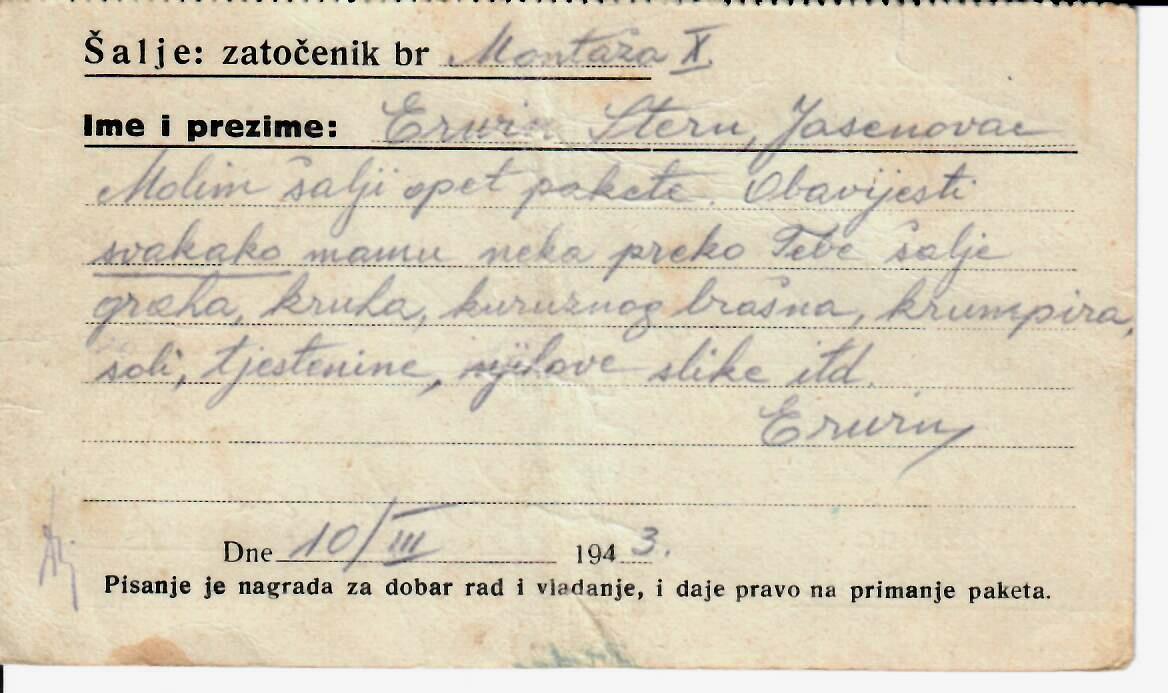 Šalje: zatočenik br Montaža X.
Ime i prezime: Erwin Stern, Jasenovac
Molim šalji opet pakete. Obavijesti
svakako mamu neka preko Tebe šalje
graha, kruha, kuruznog brašna, krumpira,
soli, tjestenine, njihove slike itd.
Erwin
Dne 10/III 1943.
Pisanje je nagrada za dobar rad i vladanje, i daje pravo na primanje paketa.